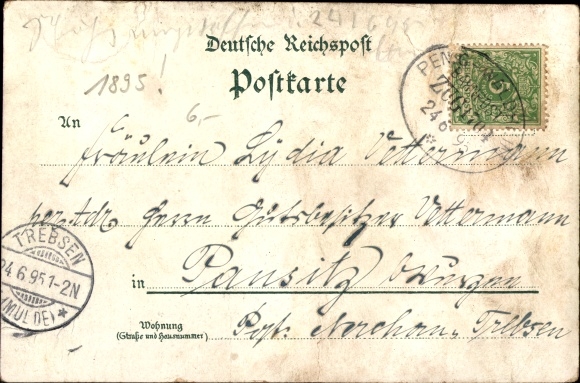 24/6 95
Deutsche Reichspost
Postkarte
1895!
6,-
PENIG
24 6
5
An
Fräulein Lydia Vettermann
per. Adr. Herrn Gutsbesitzer Vettermann
TREBSEN
24.6.95.1-2N
(MULDE)
in
Pausitz b/Wurzen
Wohnung
(Straße und Hausnummer)
Post. Nerchau-Trebsen